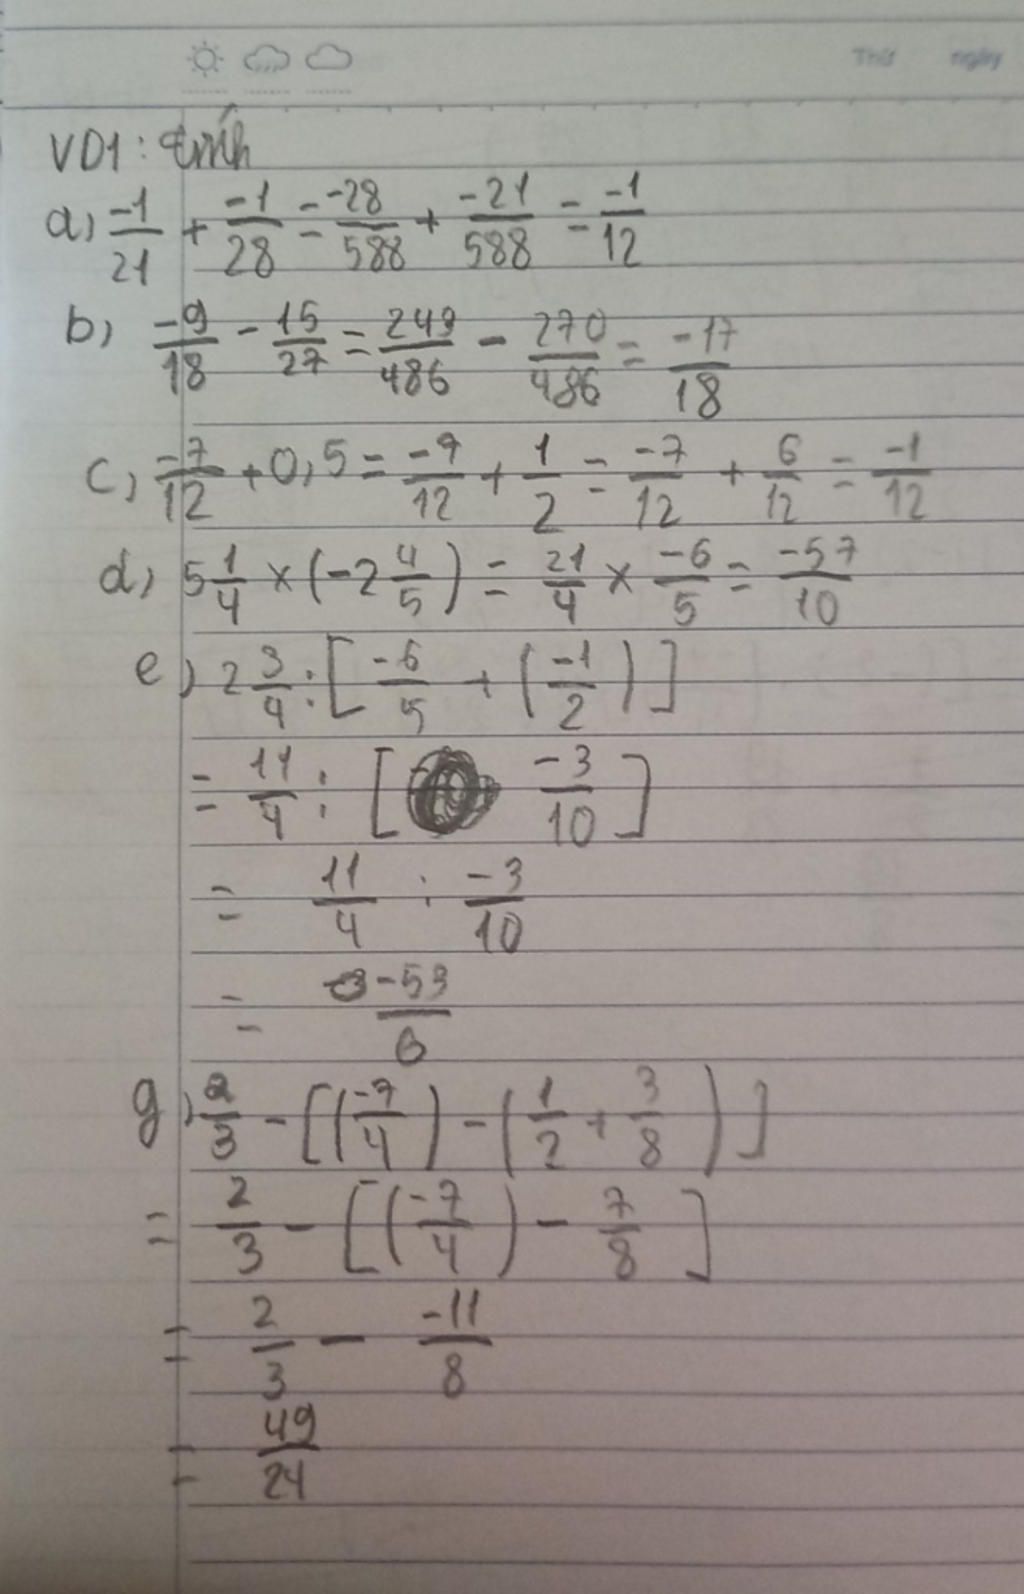 Thứ ngày
VD1: tính
a, -1/21 + -1/28 = -28/588 + -21/588 = -1/12
b, -9/18 - 15/27 = 249/486 - 270/486 = -17/18
c, -7/12 + 0,5 = -7/12 + 1/2 = -7/12 + 6/12 = -1/12
d, 5 1/4 × (-2 4/5) = 21/4 × -6/5 = -57/10
e) 2 3/4 : [-6/5 + (-1/2)]
= 11/4 : [-3/10]
= 11/4 : -3/10
= -53/6
g, 2/3 - [(-7/4) - (1/2 + 3/8)]
= 2/3 - [(-7/4) - 7/8]
= 2/3 - -11/8
= 49/24